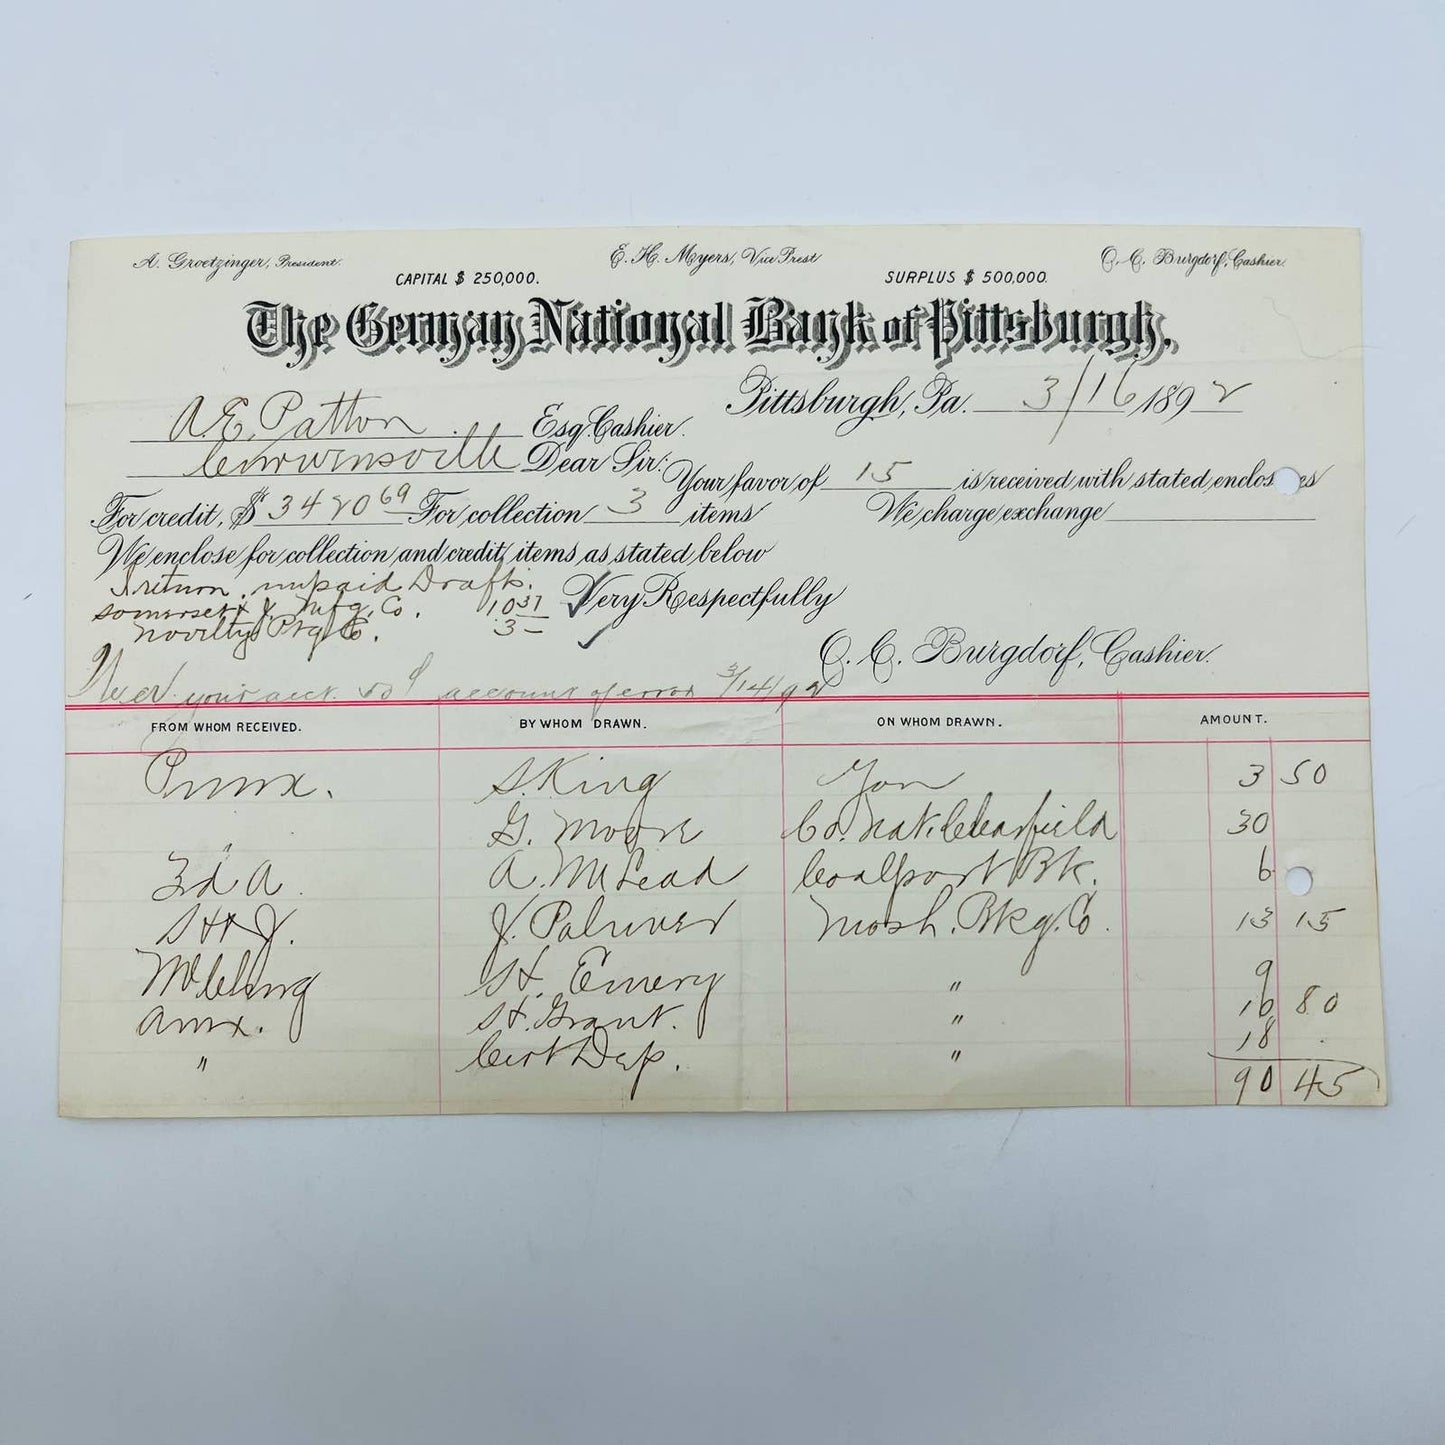 A. Groetzinger, President.
E. H. Myers, Vice Prest
C. C. Burgdorf, Cashier.
CAPITAL $ 250,000.
SURPLUS $ 500,000.
The German National Bank of Pittsburgh.
Pittsburgh, Pa. 3/16 1892
A. E. Patton Esq. Cashier.
Curwensville Dear Sir:
Your favor of 15 is received with stated enclos es
For credit, $ 3420 69 For collection 3 items
We charge exchange
We enclose for collection and credit items as stated below
return unpaid Drafts.
Somerset & J. Mfg. Co. 10 37
Novelty Ptg Co. 3 –
Very Respectfully
C. C. Burgdorf, Cashier.
your acct. account of error 3/14/92
FROM WHOM RECEIVED. BY WHOM DRAWN. ON WHOM DRAWN. AMOUNT.
Punx. S. King You 3 50
G. Moore Co. Nat. Clearfield 30
3d A. A. McLead Coalport Bk. 6
J. Palmer Mosh. Bkg. Co. 13 15
H. Emery " 9
H. Grant. " 10 80
" Cert Dep. " 18
90 45